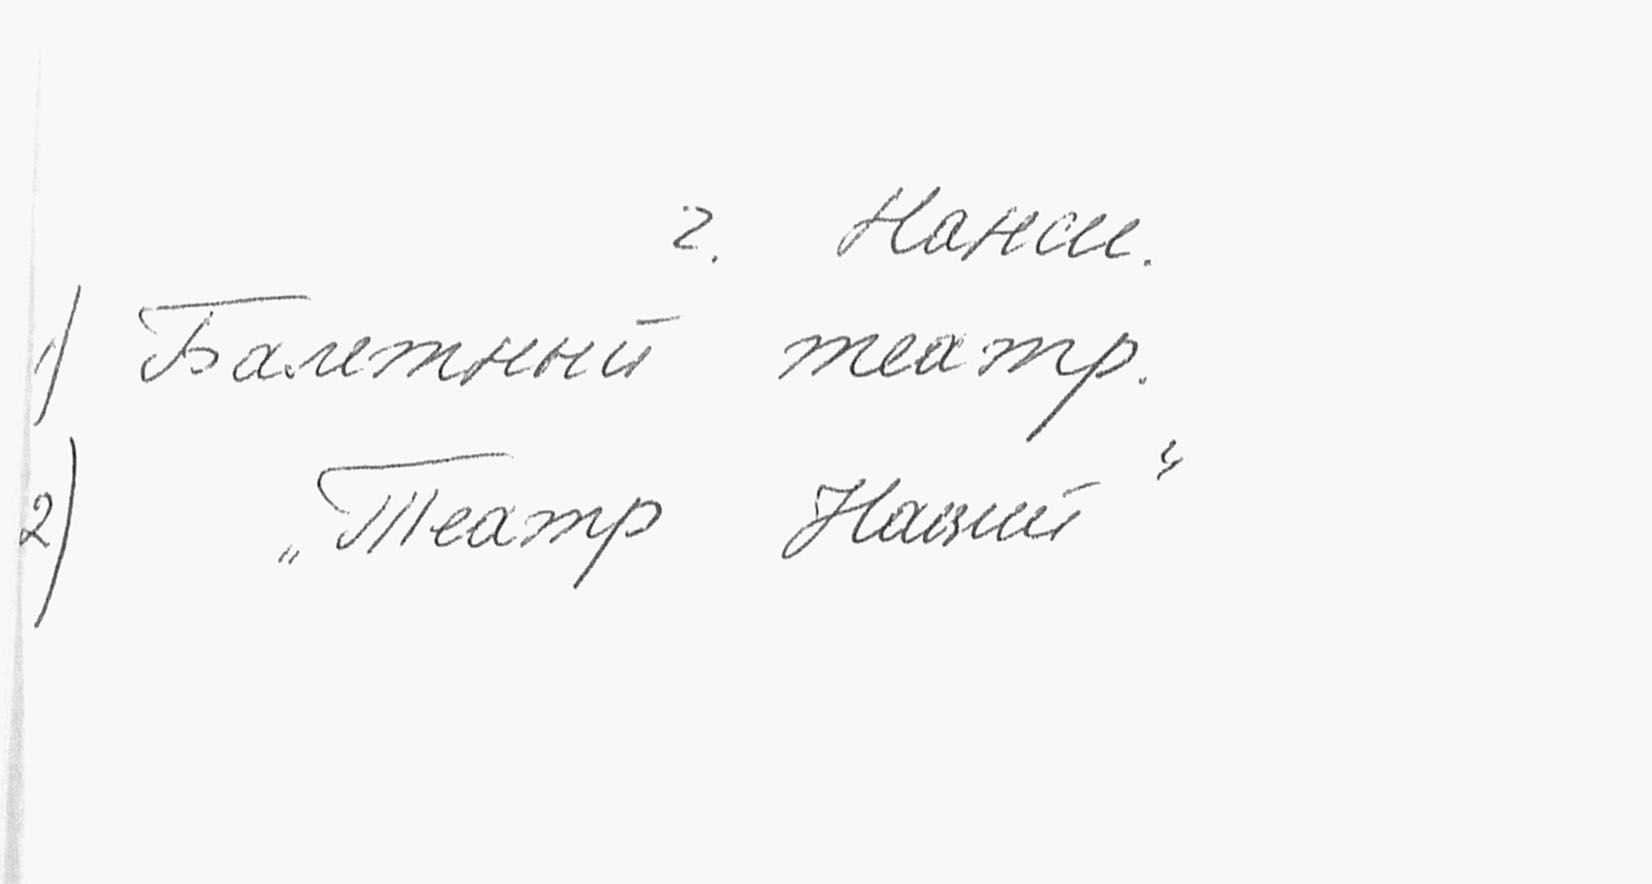 г. Нанси.
1) Балетный театр.
2) „Театр Наций“